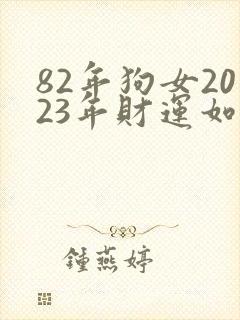 82年狗女20
23年財運如
鍾燕婷